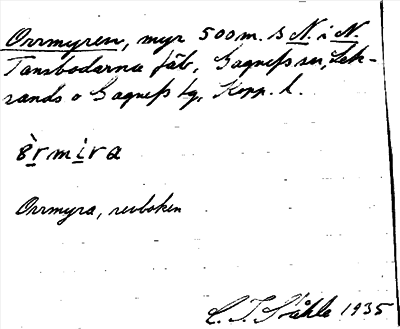 Orrmyren, myr 500 m. S N. i N.
Tansbodarna fäb., Gagnefs sn, Lek-
sands o Gagnefs tg, Kopp. l.
òrmira
Orrmyra, revboken
C. I. Ståhle 1935